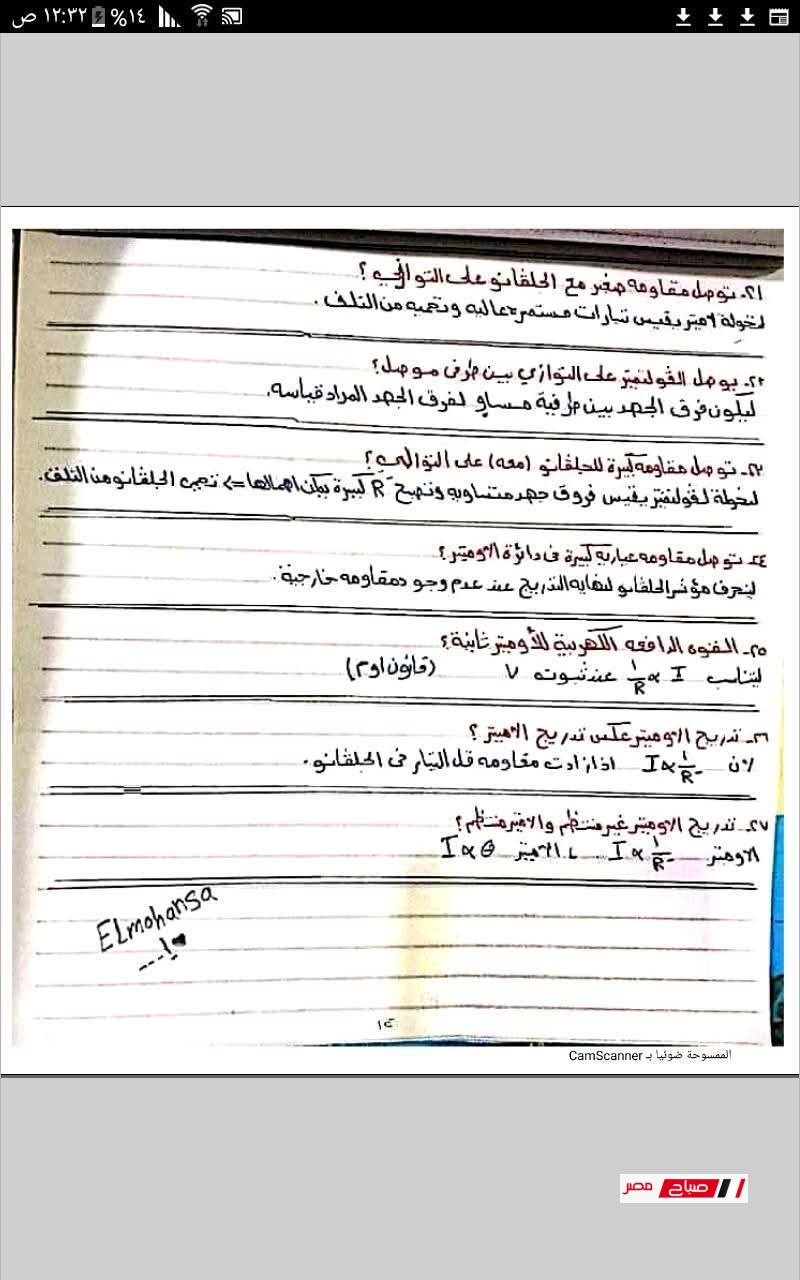 ١٢:٣٢ ص ١٤%
٢١- توصل مقاومه صغير مع الجلفانو على التوازي ؟
لخولة لاميتر يقيس تيارات مستمرة عاليه وتحميه من التلف .
٢٢- يوصل الڤولتميتر على التوازي بين طرفى موصل؟
ليكون فرق الجهد بين طرفية مساوٍ لفرق الجهد المراد قياسه.
٢٣- توصل مقاومه كبيرة للجلفانو (معه) على التوالي ؟
لخولة لڤولتميتر يقيس فروق جهد متساويه وتصبح R كبيرة يمكن اهمالها => تحمى الجلڤانو من التلف.
٢٤- توصل مقاومه عياريه كبيرة فى دائرة الاوميتر ؟
لينحرف مؤشر الجلفانو لنهايه التدريج عند عدم وجود مقاومه خارجية .
٢٥- القوه الدافعه الكهربية للأوميتر ثابتة؟
ليتناسب I ∝ 1/R عند ثبوت V (قانون اوم)
٢٦- تدريج الاوميتر عكس تدريج الاميتر ؟
لان I ∝ 1/R اذا زادت مقاومه قل التيار فى الجلڤانو .
٢٧- تدريج الاوميتر غير منتظم والاميتر منتظم؟
الاومتر I ∝ 1/R ، الاميتر I ∝ θ
ELmohansa
١٢
الممسوحة ضوئيا بـ CamScanner
صباح مصر